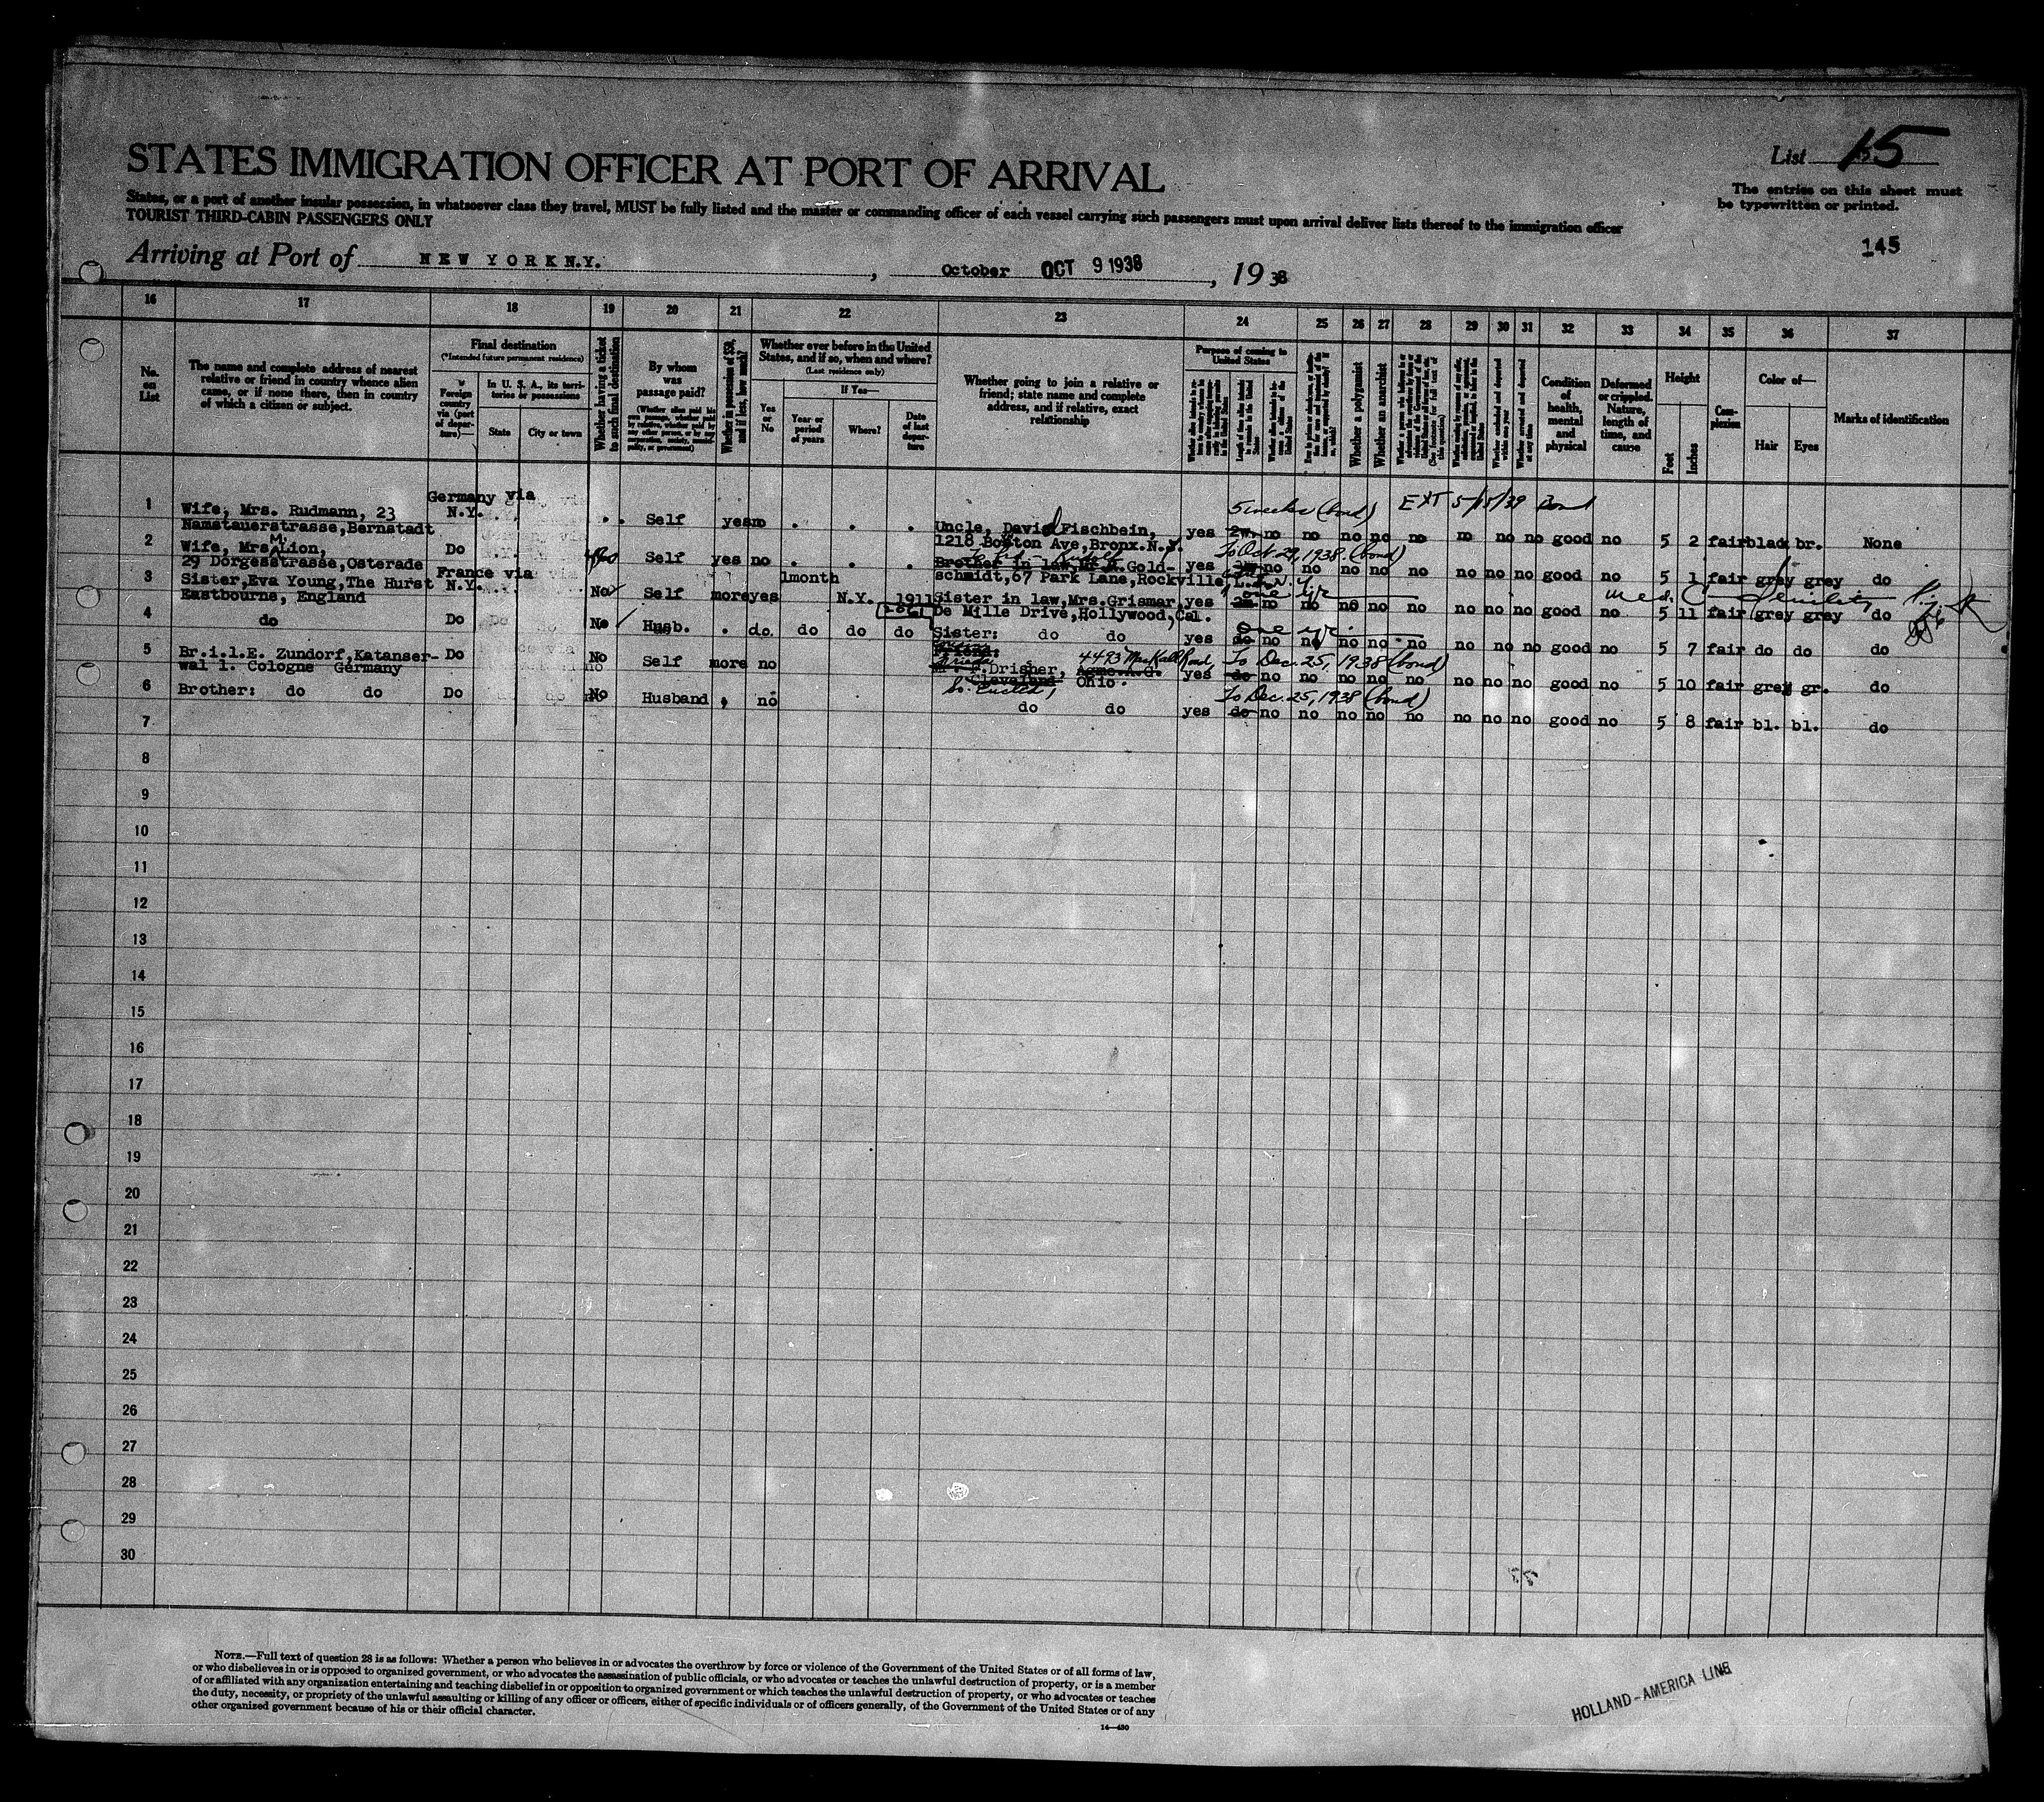 STATES IMMIGRATION OFFICER AT PORT OF ARRIVAL
List 15
The entries on this sheet must
be typewritten or printed.
States, or a part of another insular possession, in whatsoever class they travel, MUST be fully listed and the master or commanding officer of each vessel carrying such passengers must upon arrival deliver lists thereof to the immigration officer
TOURIST THIRD-CABIN PASSENGERS ONLY
145
Arriving at Port of NEW YORK N.Y. , October OCT 9 1938 , 19 38
16 17 18 19 20 21 22 23 24 25 26 27 28 29 30 31 32 33 34 35 36 37
No. on List
The name and complete address of nearest
relative or friend in country whence alien
came, or if none there, then in country
of which a citizen or subject.
Final destination
(*Intended future permanent residence)
Foreign
country
via (port
of depar-
ture)—
In U. S. A., its terri-
tories or possessions
State
City or town
Whether having a ticket
to such final destination
By whom
was
passage paid?
Whether in possession of $50,
and if less, how much?
Whether ever before in the United
States, and if so, when and where?
(Last residence only)
Yes or No
If Yes—
Year or
period
of years
Where?
Date
of last
depar-
ture
Whether going to join a relative or
friend; state name and complete
address, and if relative, exact
relationship
Purpose of coming to
United States
Whether a polygamist
Whether an anarchist
Condition
of
health,
mental
and
physical
Deformed
or crippled.
Nature,
length of
time, and
cause
Height
Feet
Inches
Com-
plexion
Color of—
Hair
Eyes
Marks of identification
5 weeks (bond) EXT 5/15/39 Bond
1 Wife, Mrs. Rudmann, 23 Germany via N.Y. Self yes no Uncle, David Fischbein, yes 2w. no no no no no no no no good no 5 2 fair black br. None
Namstauerstrasse,Bernstadt 1218 Boston Ave,Bronx.N.Y.
To Oct 29, 1938 (bond)
2 Wife, Mrs M. Lion, Do Self yes no Brother in law, Gold- yes no no no no no no no no good no 5 1 fair grey grey do
29 Dorgesstrasse,Osterade schmidt,67 Park Lane,Rockville, L.I. N.Y.
one yr med. C Senility
3 Sister,Eva Young,The Hurst France via N.Y. No Self more yes 1month N.Y. 1911 Sister in law,Mrs.Grismar, yes no no no no no no no no good no 5 11 fair grey grey do
Eastbourne, England 2061 De Mille Drive,Hollywood,Cal.
One yr.
4 do Do No Husb. . do. do do do Sister: do do yes do no no no no no no no no good no 5 7 fair do do do
To Dec. 25, 1938 (bond)
5 Br.i.l.E. Zundorf,Katanser- Do No Self more no F.Drisher, 4493 Mackall Road, yes do no no no no no no no no good no 5 10 fair grey gr. do
wal 1. Cologne Germany Cleveland Ohio.
So. Euclid,
To Dec. 25, 1938 (bond)
6 Brother: do do Do No Husband , no do do yes do no no no no no no no no good no 5 8 fair bl. bl. do
7
8
9
10
11
12
13
14
15
16
17
18
19
20
21
22
23
24
25
26
27
28
29
30
NOTE.—Full text of question 28 is as follows: Whether a person who believes in or advocates the overthrow by force or violence of the Government of the United States or of all forms of law,
or who disbelieves in or is opposed to organized government, or who advocates the assassination of public officials, or who advocates or teaches the unlawful destruction of property, or is a member
of or affiliated with any organization entertaining and teaching disbelief in or opposition to organized government or which teaches the unlawful destruction of property, or who advocates or teaches
the duty, necessity, or propriety of the unlawful assaulting or killing of any officer or officers, either of specific individuals or of officers generally, of the Government of the United States or of any
other organized government because of his or their official character.
14—430
HOLLAND-AMERICA LINE